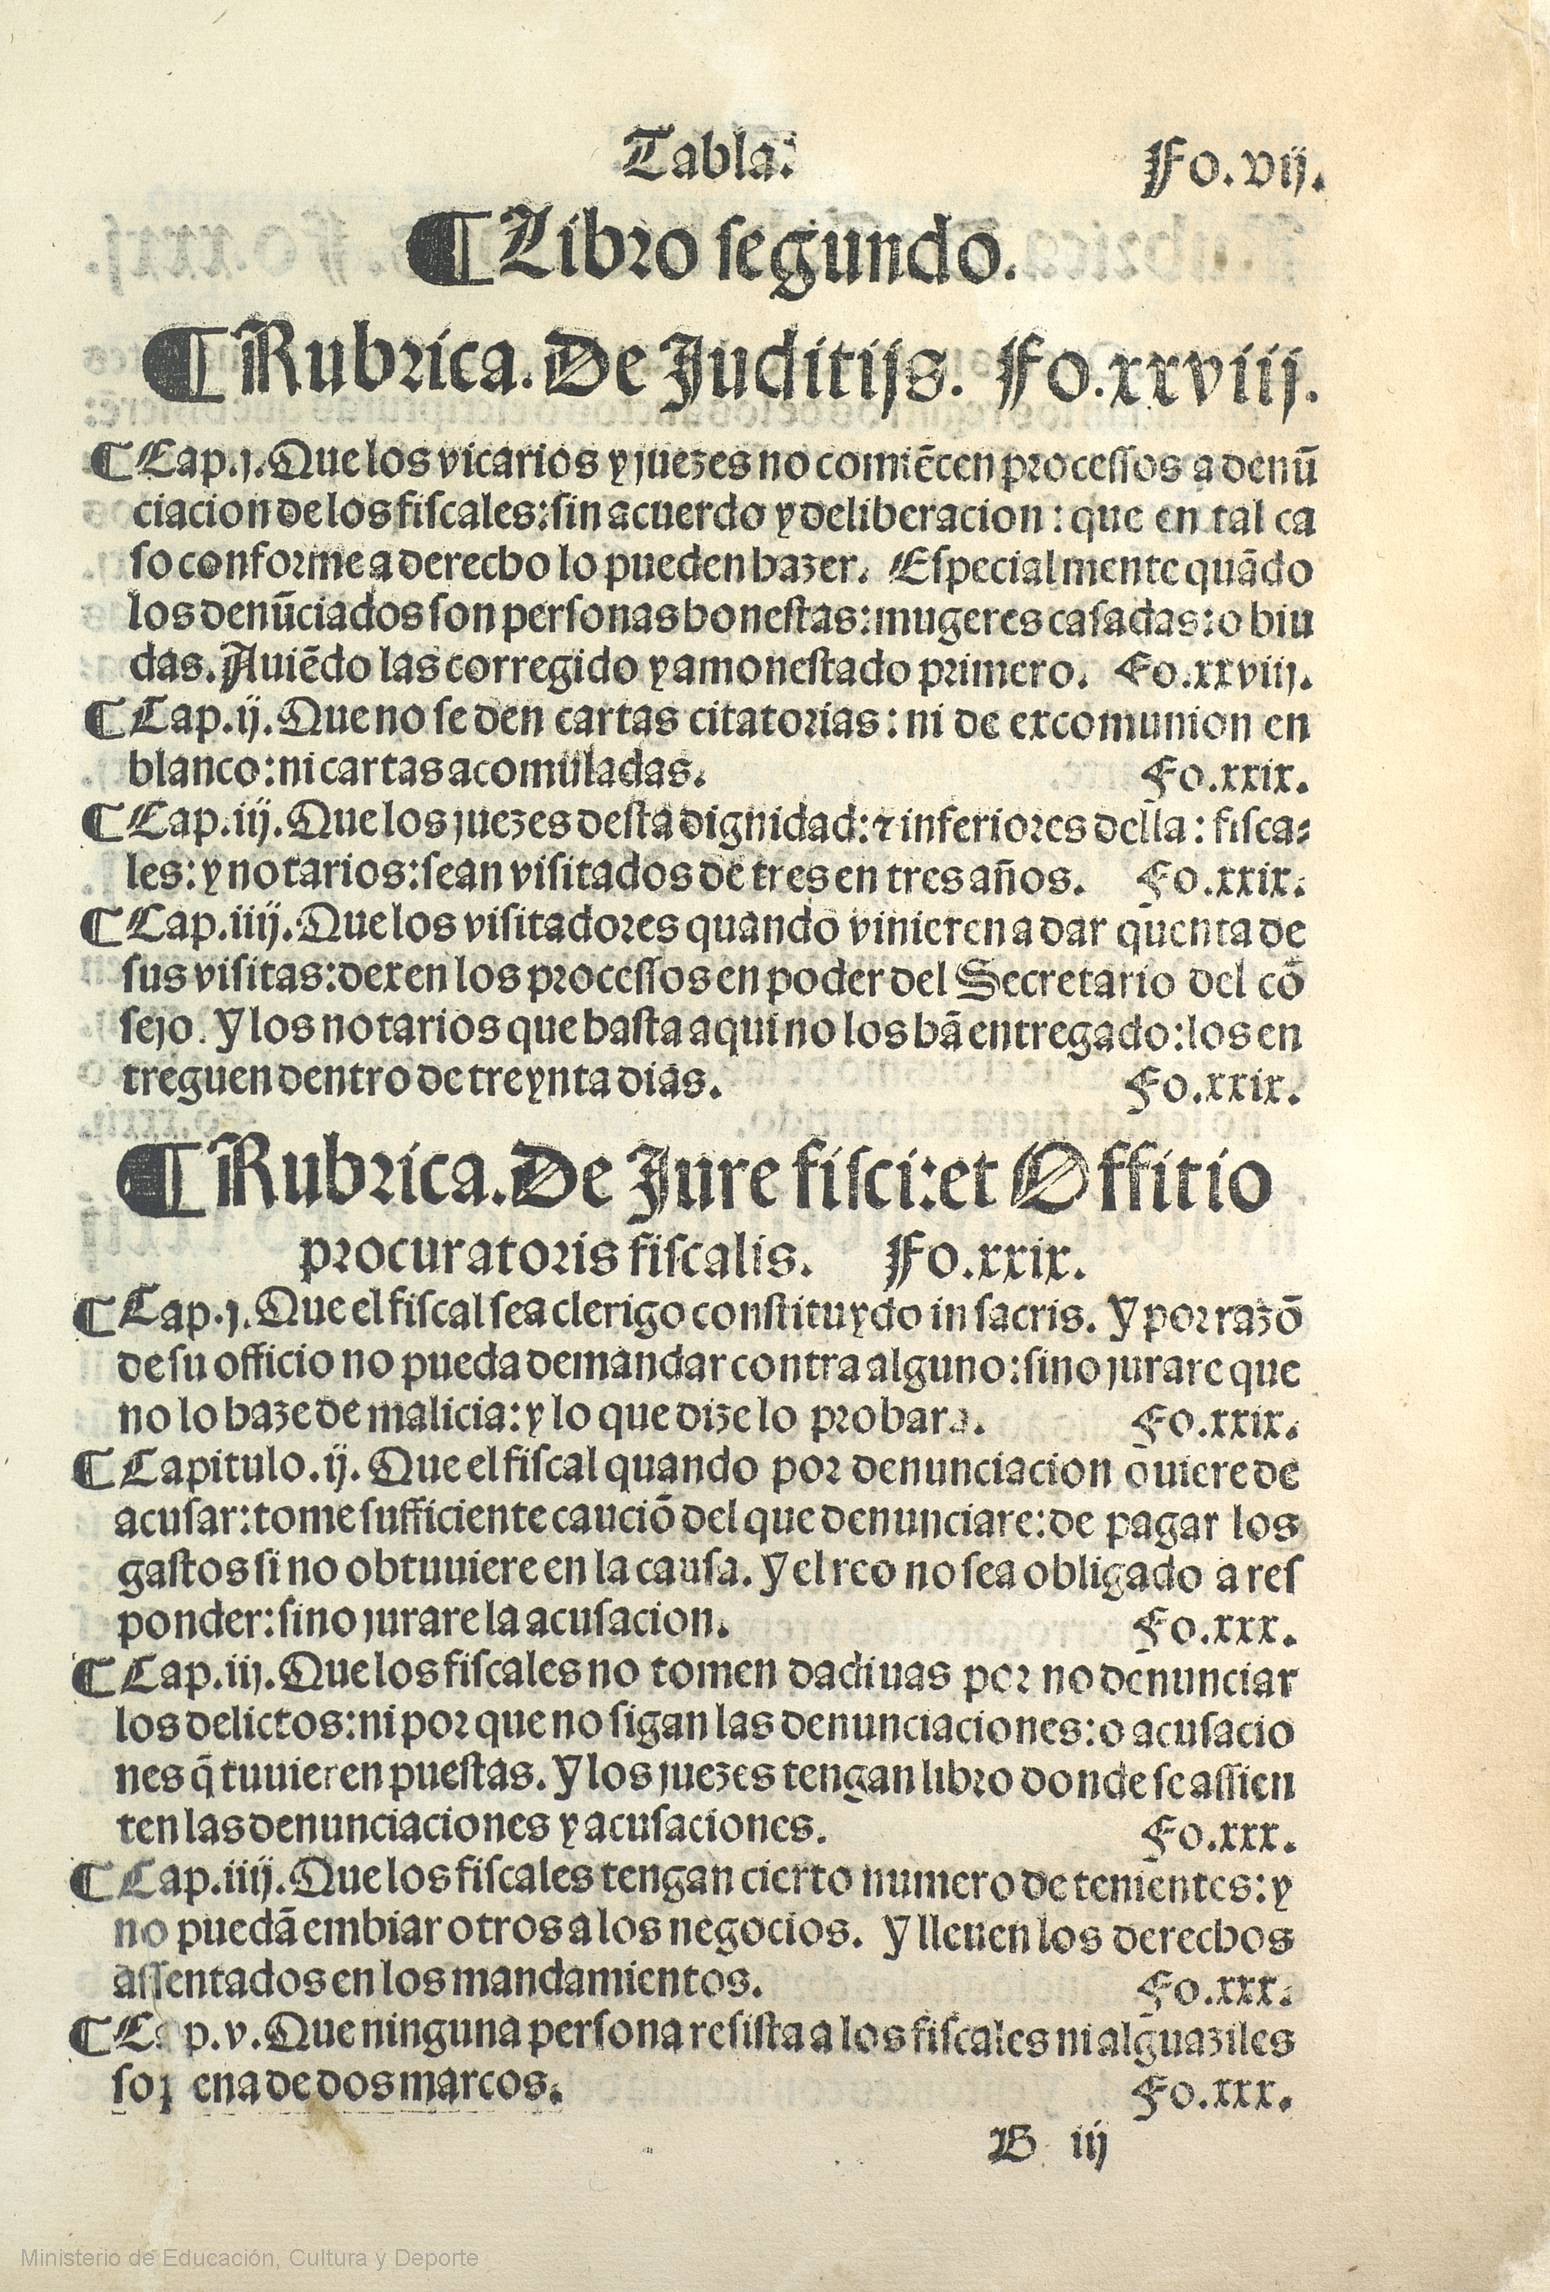 Tabla. Fo.vij.
¶Libro segundo.
¶Rubrica. De Juditijs. Fo.xxviij.
¶Cap.j. Que los vicarios y juezes no comiẽcen processos a denũ
ciacion de los fiscales: sin acuerdo y deliberacion: que en tal ca
so conforme a derecho lo pueden hazer. Especialmente quãdo
los denũciados son personas honestas: mugeres casadas: o biu
das. Auiẽdo las corregido y amonestado primero. Fo.xxviij.
¶Cap.ij. Que no se den cartas citatorias: ni de excomunion en
blanco: ni cartas acomuladas. Fo.xxix.
¶Cap.iij. Que los juezes desta dignidad: ⁊ inferiores della: fisca-
les: y notarios: sean visitados de tres en tres años. Fo.xxix.
¶Cap.iiij. Que los visitadores quando vinieren a dar quenta de
sus visitas: dexen los processos en poder del Secretario del cõ
sejo. Y los notarios que hasta aqui no los hã entregado: los en
treguen dentro de treynta dias. Fo.xxix.
¶Rubrica. De Jure fisci: et Offitio
procuratoris fiscalis. Fo.xxix.
¶Cap.j. Que el fiscal sea clerigo constituydo in sacris. Y por razõ
de su officio no pueda demandar contra alguno: sino jurare que
no lo haze de malicia: y lo que dize lo probara. Fo.xxix.
¶Capitulo.ij. Que el fiscal quando por denunciacion ouiere de
acusar: tome sufficiente cauciõ del que denunciare: de pagar los
gastos si no obtuuiere en la causa. Y el reo no sea obligado a res
ponder: sino jurare la acusacion. Fo.xxx.
¶Cap.iij. Que los fiscales no tomen dadiuas por no denunciar
los delictos: ni por que no sigan las denunciaciones: o acusacio
nes q̃ tuuieren puestas. Y los juezes tengan libro donde se assien
ten las denunciaciones y acusaciones. Fo.xxx.
¶Cap.iiij. Que los fiscales tengan cierto numero de tenientes: y
no puedã embiar otros a los negocios. Y lleuen los derechos
assentados en los mandamientos. Fo.xxx.
¶Cap.v. Que ninguna persona resista a los fiscales ni alguaziles
so pena de dos marcos. Fo.xxx.
B iij
Ministerio de Educación, Cultura y Deporte